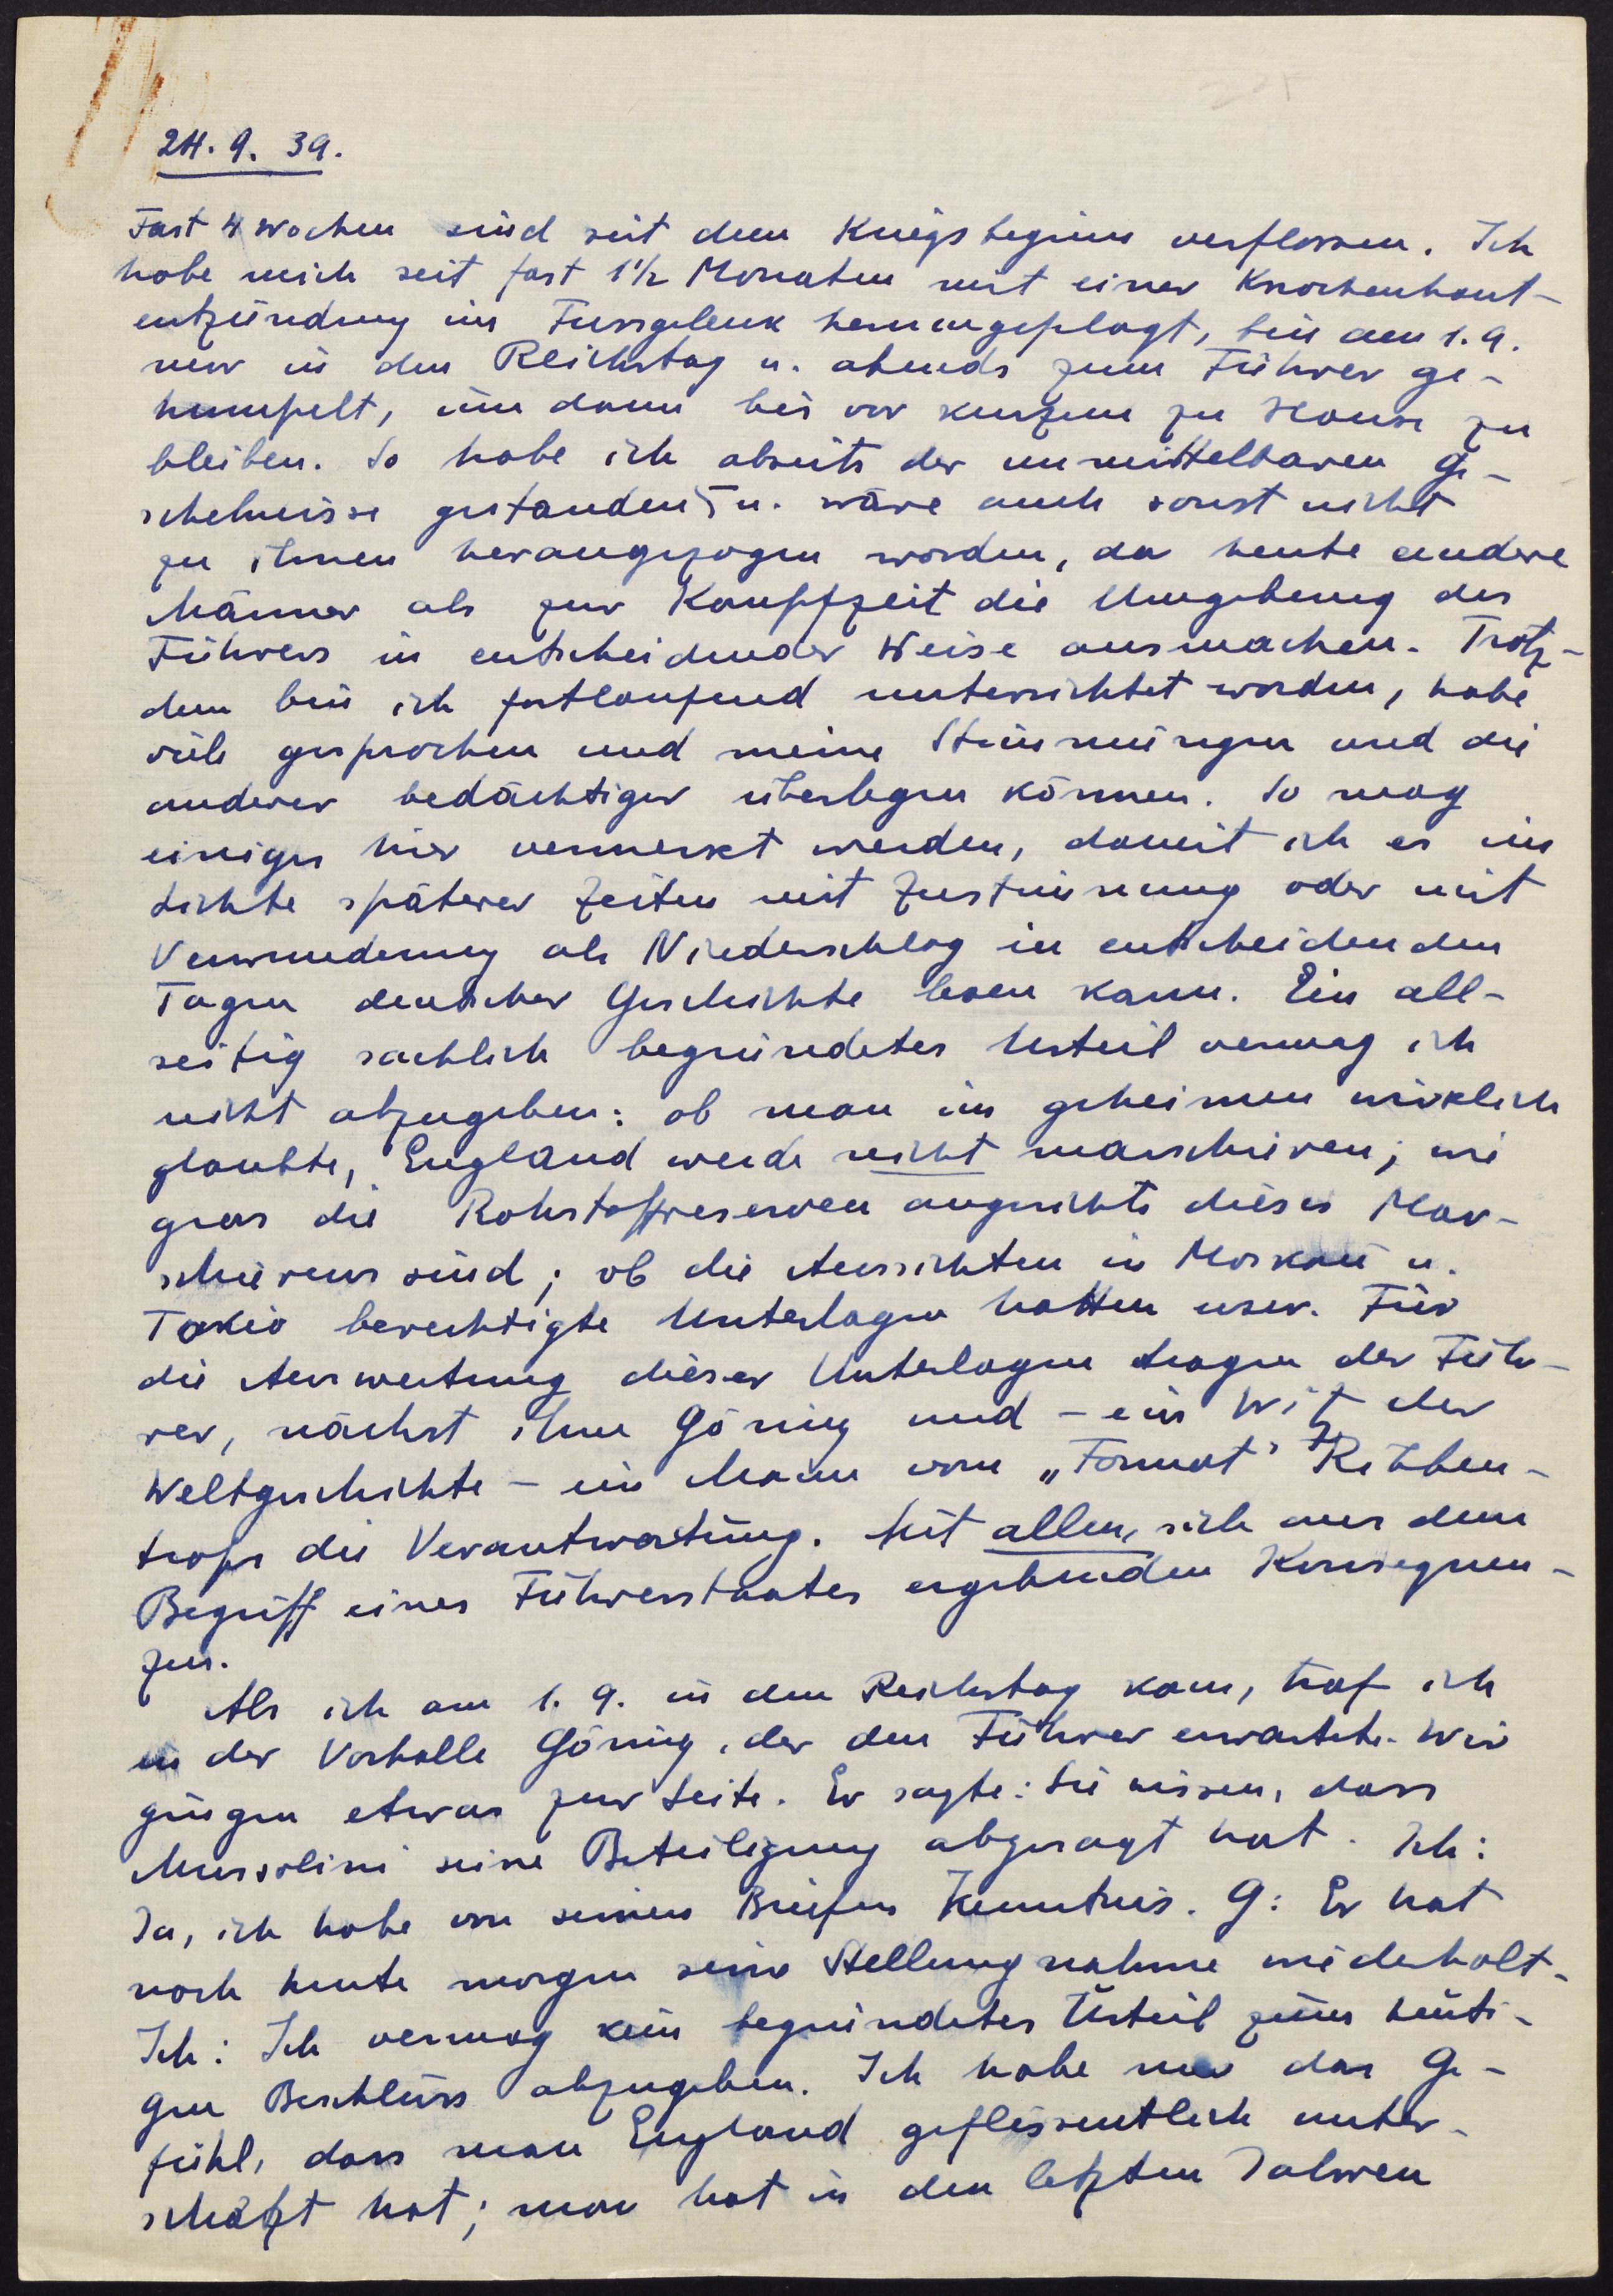 24.9.39.
Fast 4 Wochen sind seit dem Kriegsbeginn verflossen. Ich
habe mich seit fast 1½ Monaten mit einer Knochenhaut-
entzündung im Fussgelenk herumgeplagt, bin am 1.9.
nur in den Reichstag u. abends zum Führer ge-
humpelt, um dann bis vor kurzem zu Hause zu
bleiben. So habe ich abseits der unmittelbaren Ge-
schehnisse gestanden u. wäre auch sonst nicht
zu ihnen herangezogen worden, da heute andere
Männer als zur Kampfzeit die Umgebung des
Führers in entscheidender Weise ausmachen. Trotz-
dem bin ich fortlaufend unterrichtet worden, habe
viele gesprochen und meine Stimmungen und die
anderer bedächtiger überlegen können. So mag
einiges hier vermerkt werden, damit ich es im
Lichte späterer Zeiten mit Zustimmung oder mit
Verwunderung als Niederschlag in entscheidenden
Tagen deutscher Geschichte lesen kann. Ein all-
seitig sachlich begründetes Urteil vermag ich
nicht abzugeben: ob man im geheimen wirklich
glaubte, England werde nicht marschieren; wie
gross die Rohstoffreserven angesichts dieses Mar-
schierens sind; ob die Aussichten in Moskau u.
Tokio berechtigte Unterlagen hatten usw. Für
die Auswertung dieser Unterlagen tragen der Füh-
rer, nächst ihm Göring und – ein Witz der
Weltgeschichte – ein Mann vom „Format" Ribben-
trops die Verantwortung. Mit allen, sich aus dem
Begriff eines Führerstaates ergebenden Konsequen-
zen.
Als ich am 1.9. in den Reichstag kam, traf ich
in der Vorhalle Göring, der den Führer erwartete. Wir
gingen etwas zur Seite. Er sagte: Sie wissen, dass
Mussolini seine Beteiligung abgesagt hat. Ich:
Ja, ich habe von seinen Briefen Kenntnis. G: Er hat
noch heute morgen seine Stellungnahme wiederholt.
Ich: Ich vermag kein begründetes Urteil zum heuti-
gen Beschluss abzugeben. Ich habe nur das Ge-
fühl, dass man England geflissentlich unter-
schätzt hat; man hat in den letzten Jahren